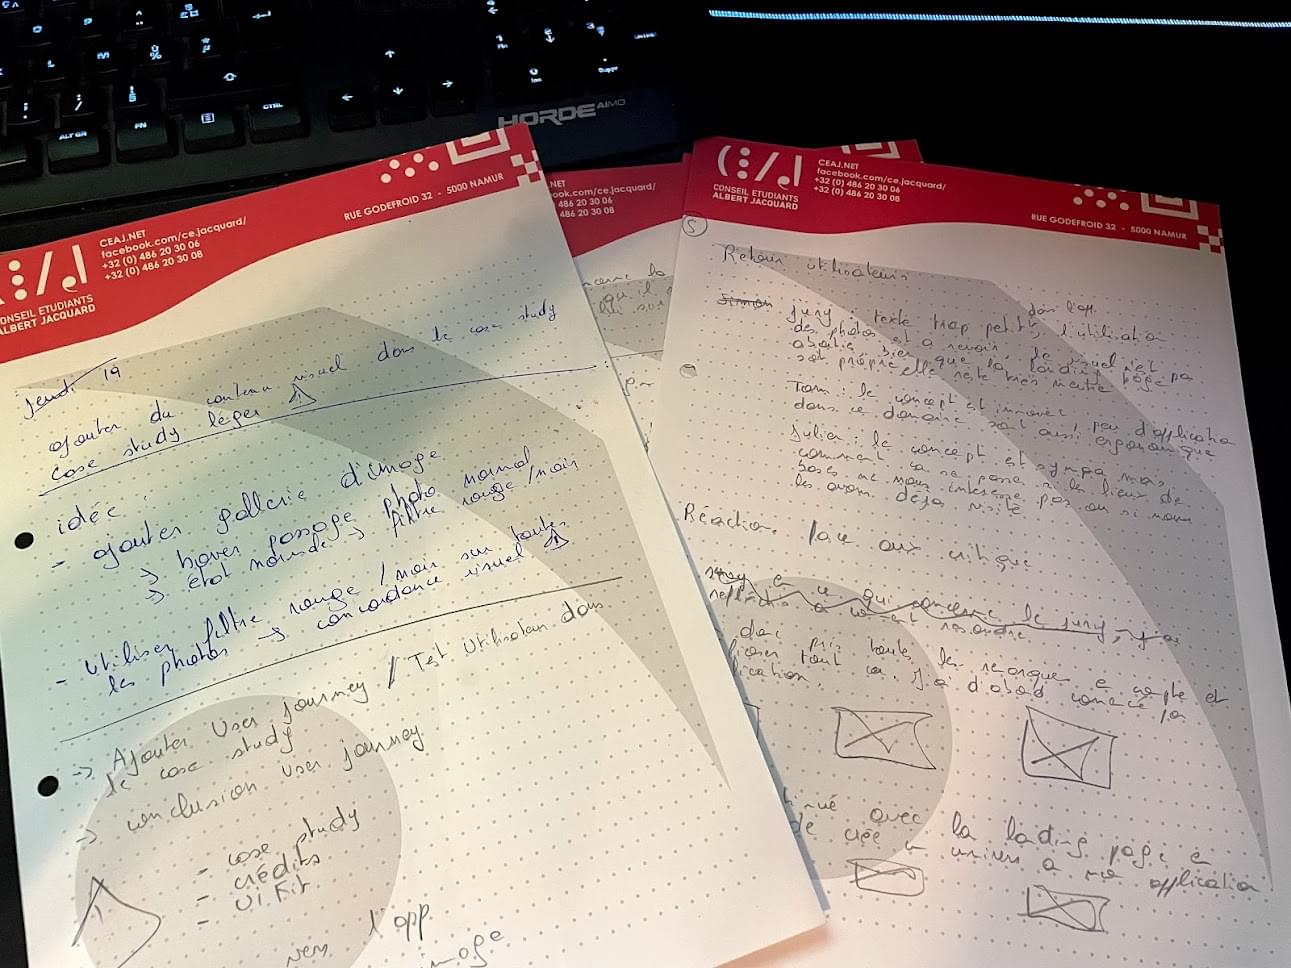 ALT GR
FN
CTRL
HORDE AIMO
CEAJ.NET
facebook.com/ce.jacquard/
+32 (0) 486 20 30 06
+32 (0) 486 20 30 08
CONSEIL ETUDIANTS
ALBERT JACQUARD
RUE GODEFROID 32 - 5000 NAMUR
jeudi 19
ajouter du contenu visuel dans le case study
case study léger
idée :
- ajouter gallerie d'image
-> hover passage photo normal
-> état normale -> filtre rouge/noir
- utiliser filtre rouge / noir sur toutes
les photos -> concordance visuel
-> Ajouter User journey / Test Utilisateur dans
le case study
-> conclusion user journey
- case study
- crédits
- UI Kit
vers l'app
image
.NET
book.com/ce.jacquard/
486 20 30 06
486 20 30 08
CEAJ.NET
facebook.com/ce.jacquard/
+32 (0) 486 20 30 06
+32 (0) 486 20 30 08
CONSEIL ETUDIANTS
ALBERT JACQUARD
RUE GODEFROID 32 - 5000 NAMUR
5
Retour utilisateurs
Simon
dans l'app
Jury : texte trop petit, l'utilisation
des photos est a revoir, le visuel n'est pas
bien que la loading page
soit propre elle reste très
Tom : le concept est innovant, peu d'application
dans ce domaine sont aussi ergonomique
Julien : le concept est sympa mais
comment ça se passe si les lieux de
bases ne nous intéresse pas ou si nous
les avons déjà visité
Réaction face aux critique
ce qui concerne le jury, j'ai
donc pris toutes les remarques en compte et
tout ça. J'ai d'abord commencé par
avec la loading page
crée un univers a mon application